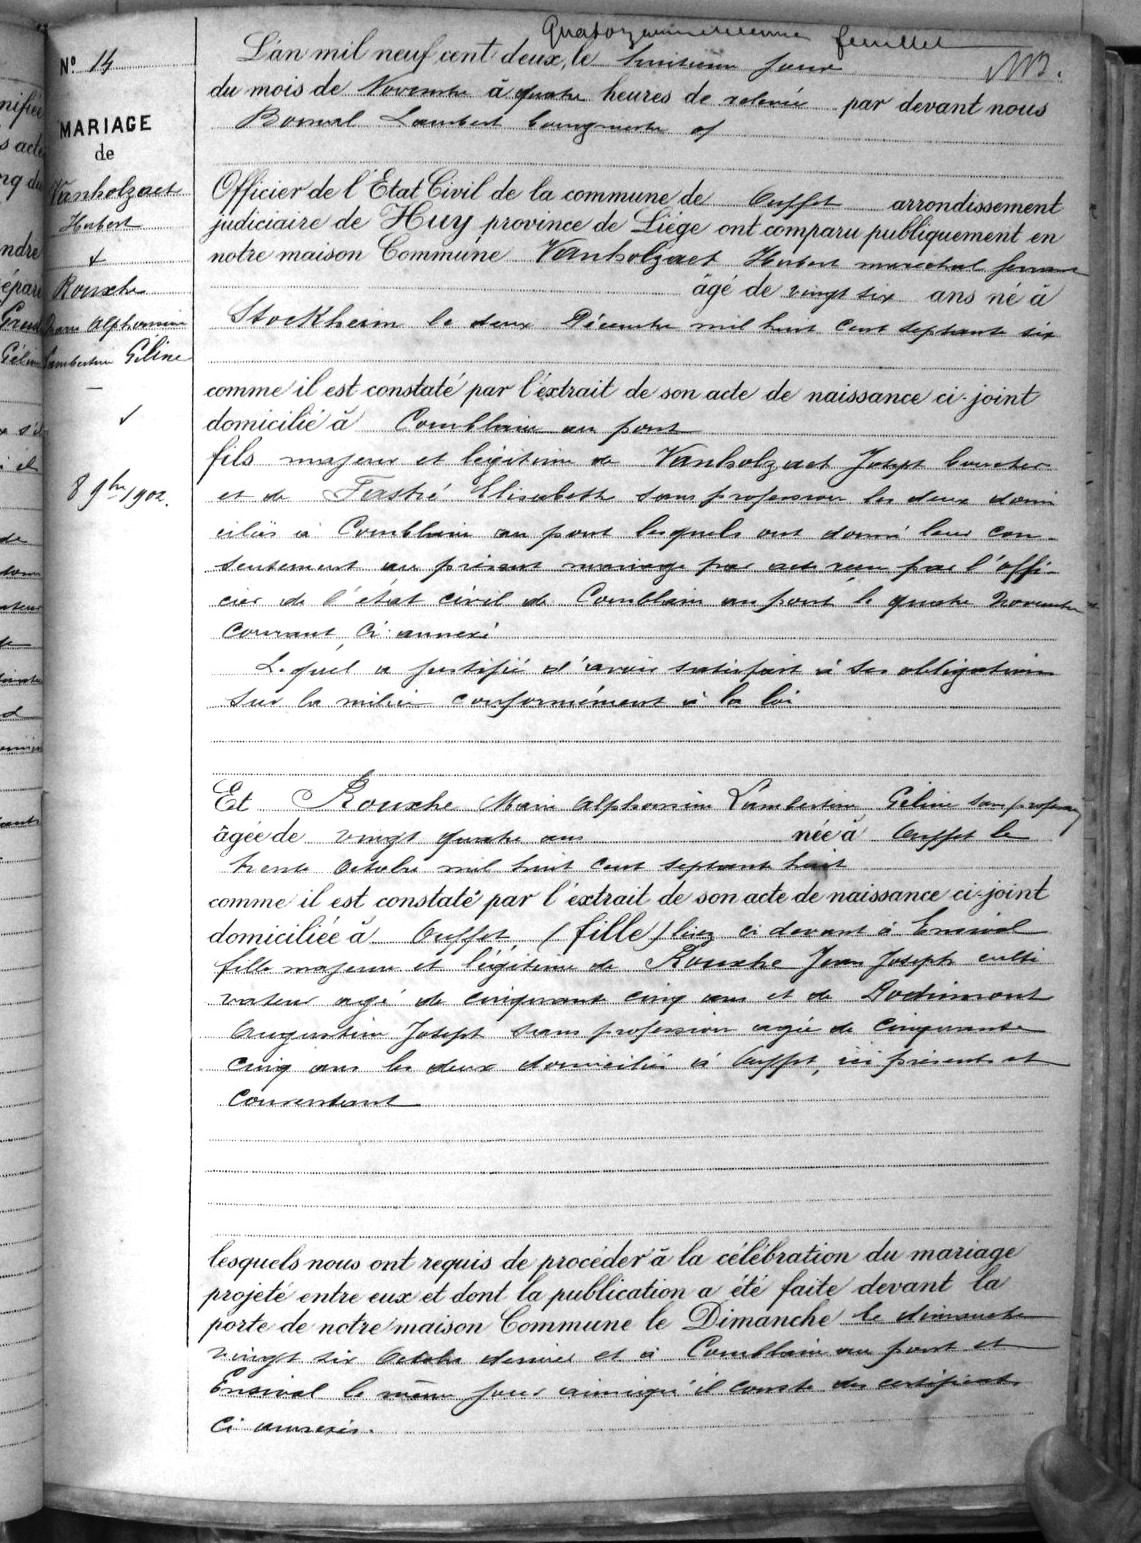 Quatorzième feuillet
N° 14
MARIAGE
de
Vanholzaet
Hubert
+
Rouxhe
Marie Alphonsine
Lambertine Géline
8 9bre 1902.
L'an mil neuf cent deux, le huitième jour
du mois de Novembre à quatre heures de relevée par devant nous
Lambert bourgmestre
Officier de l'Etat Civil de la commune de Ouffet arrondissement
judiciaire de Huy province de Liége ont comparu publiquement en
notre maison Commune Vanholzaet Hubert marechal ferrant
âgé de vingt six ans né à
Stockheim le deux Décembre mil huit cent septante six
comme il est constaté par l'extrait de son acte de naissance ci-joint
domicilié à Comblain au pont
fils majeur et légitime de Vanholzaet Joseph
et de Fastré Elisabeth sans profession les deux domi
ciliés à Comblain au pont lesquels ont donné leur con-
sentement au présent mariage par acte reçu par l'offi-
cier de l'état civil de Comblain au pont le quatre Novembre
courant, ci-annexé
Lequel a justifié d'avoir satisfait à ses obligations
sur la milice conformément à la loi
Et Rouxhe Marie Alphonsine Lambertine Géline sans profession
âgée de vingt quatre ans née à Ouffet le
trente Octobre mil huit cent septante huit
comme il est constaté par l'extrait de son acte de naissance ci-joint
domiciliée à Ouffet (fille) ci devant à Ensival
fille majeure et légitime de Rouxhe Jean Joseph culti
vateur agé de cinquante cinq ans et de Dodrimont
Augustine Joseph sans profession agée de cinquante
cinq ans les deux domiciliés à Ouffet, ici présents et
consentant
lesquels nous ont requis de procéder à la célébration du mariage
projeté entre eux et dont la publication a été faite devant la
porte de notre maison Commune le Dimanche le dimanche
vingt six Octobre dernier et à Comblain au pont et
Ensival le même jour ainsi qu'il conste des certificats
ci annexés.